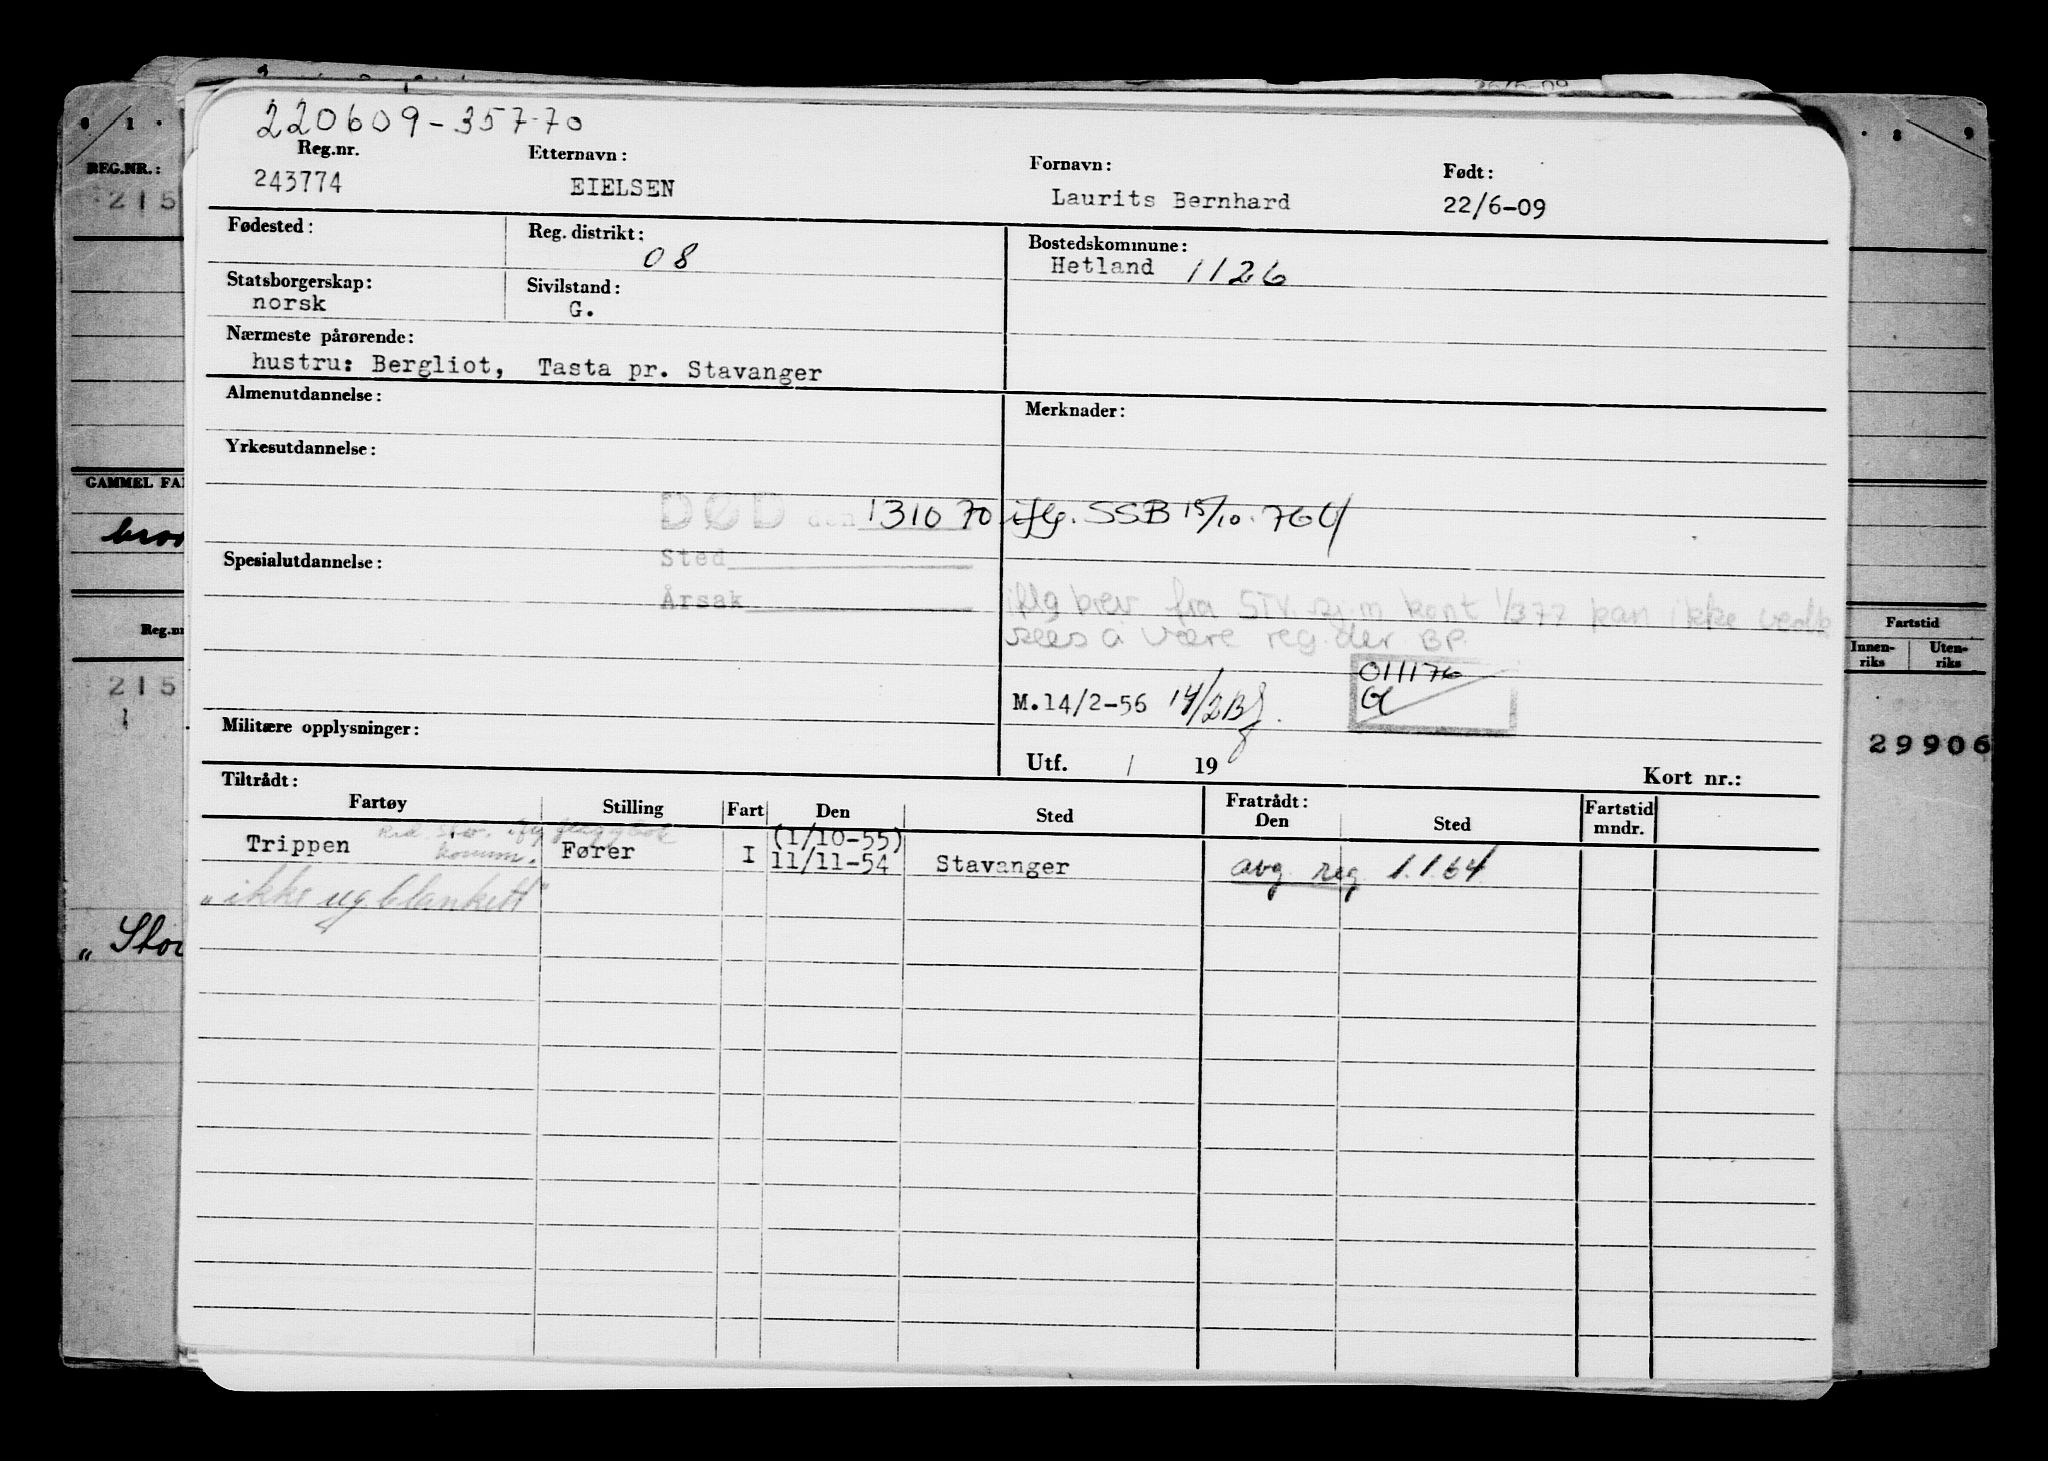 220609-35770
Reg.nr.
243774
Etternavn:
EIELSEN
Fornavn:
Laurits Bernhard
Født:
22/6-09
Fødested:
Reg. distrikt:
08
Bostedskommune:
Hetland 1126
Statsborgerskap:
norsk
Sivilstand:
G.
Nærmeste pårørende:
hustru: Bergliot, Tasta pr. Stavanger
Almenutdannelse:
Merknader:
Yrkesutdannelse:
DØD den 131070 iflg. SSB 15/10.76
Sted
Spesialutdannelse:
Årsak
iflg brev fra STV. sj.m kont 1/377 kan ikke vedk
sees å være reg. der BP.
011176
M.14/2-56 14/2
Militære opplysninger:
Utf. / 19
Kort nr.:
Tiltrådt:
Fratrådt:
Fartøy
Stilling
Fart
Den
Sted
Den
Sted
Fartstid
mndr.
Trippen
Fører
I
(1/10-55)
11/11-54
Stavanger
avg. reg. 1.1.64
"ikke ug. blankett"
REG.NR.:
215
GAMMEL FA
Reg.nr
215
1
" Stor
0 / 1 .
. 8 9
Fartstid
Innen-
riks
Uten-
riks
29906